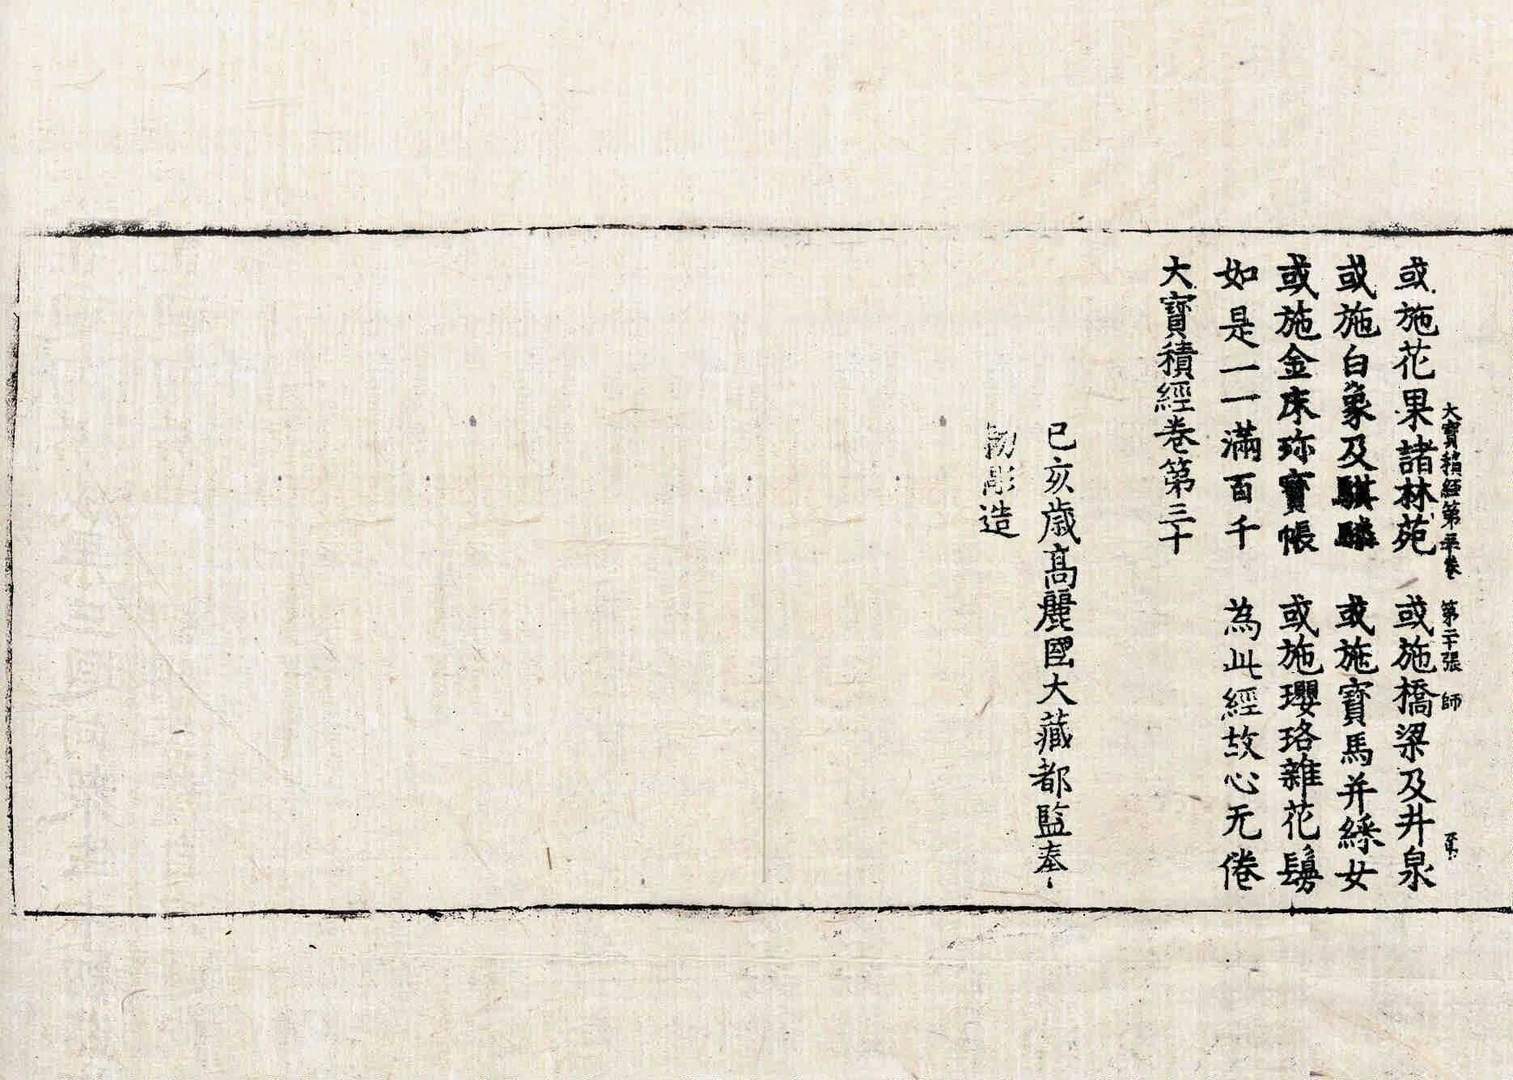 或施花果諸林苑　或施橋梁及井泉
大寶積經第三十卷　第二十張　師
或施白象及騏驎　或施寶馬并綵女
或施金床珎寶帳　或施瓔珞雜花鬘
如是一一滿百千　為此經故心无倦
大寶積經卷第三十
己亥歲高麗國大藏都監奉
勑彫造